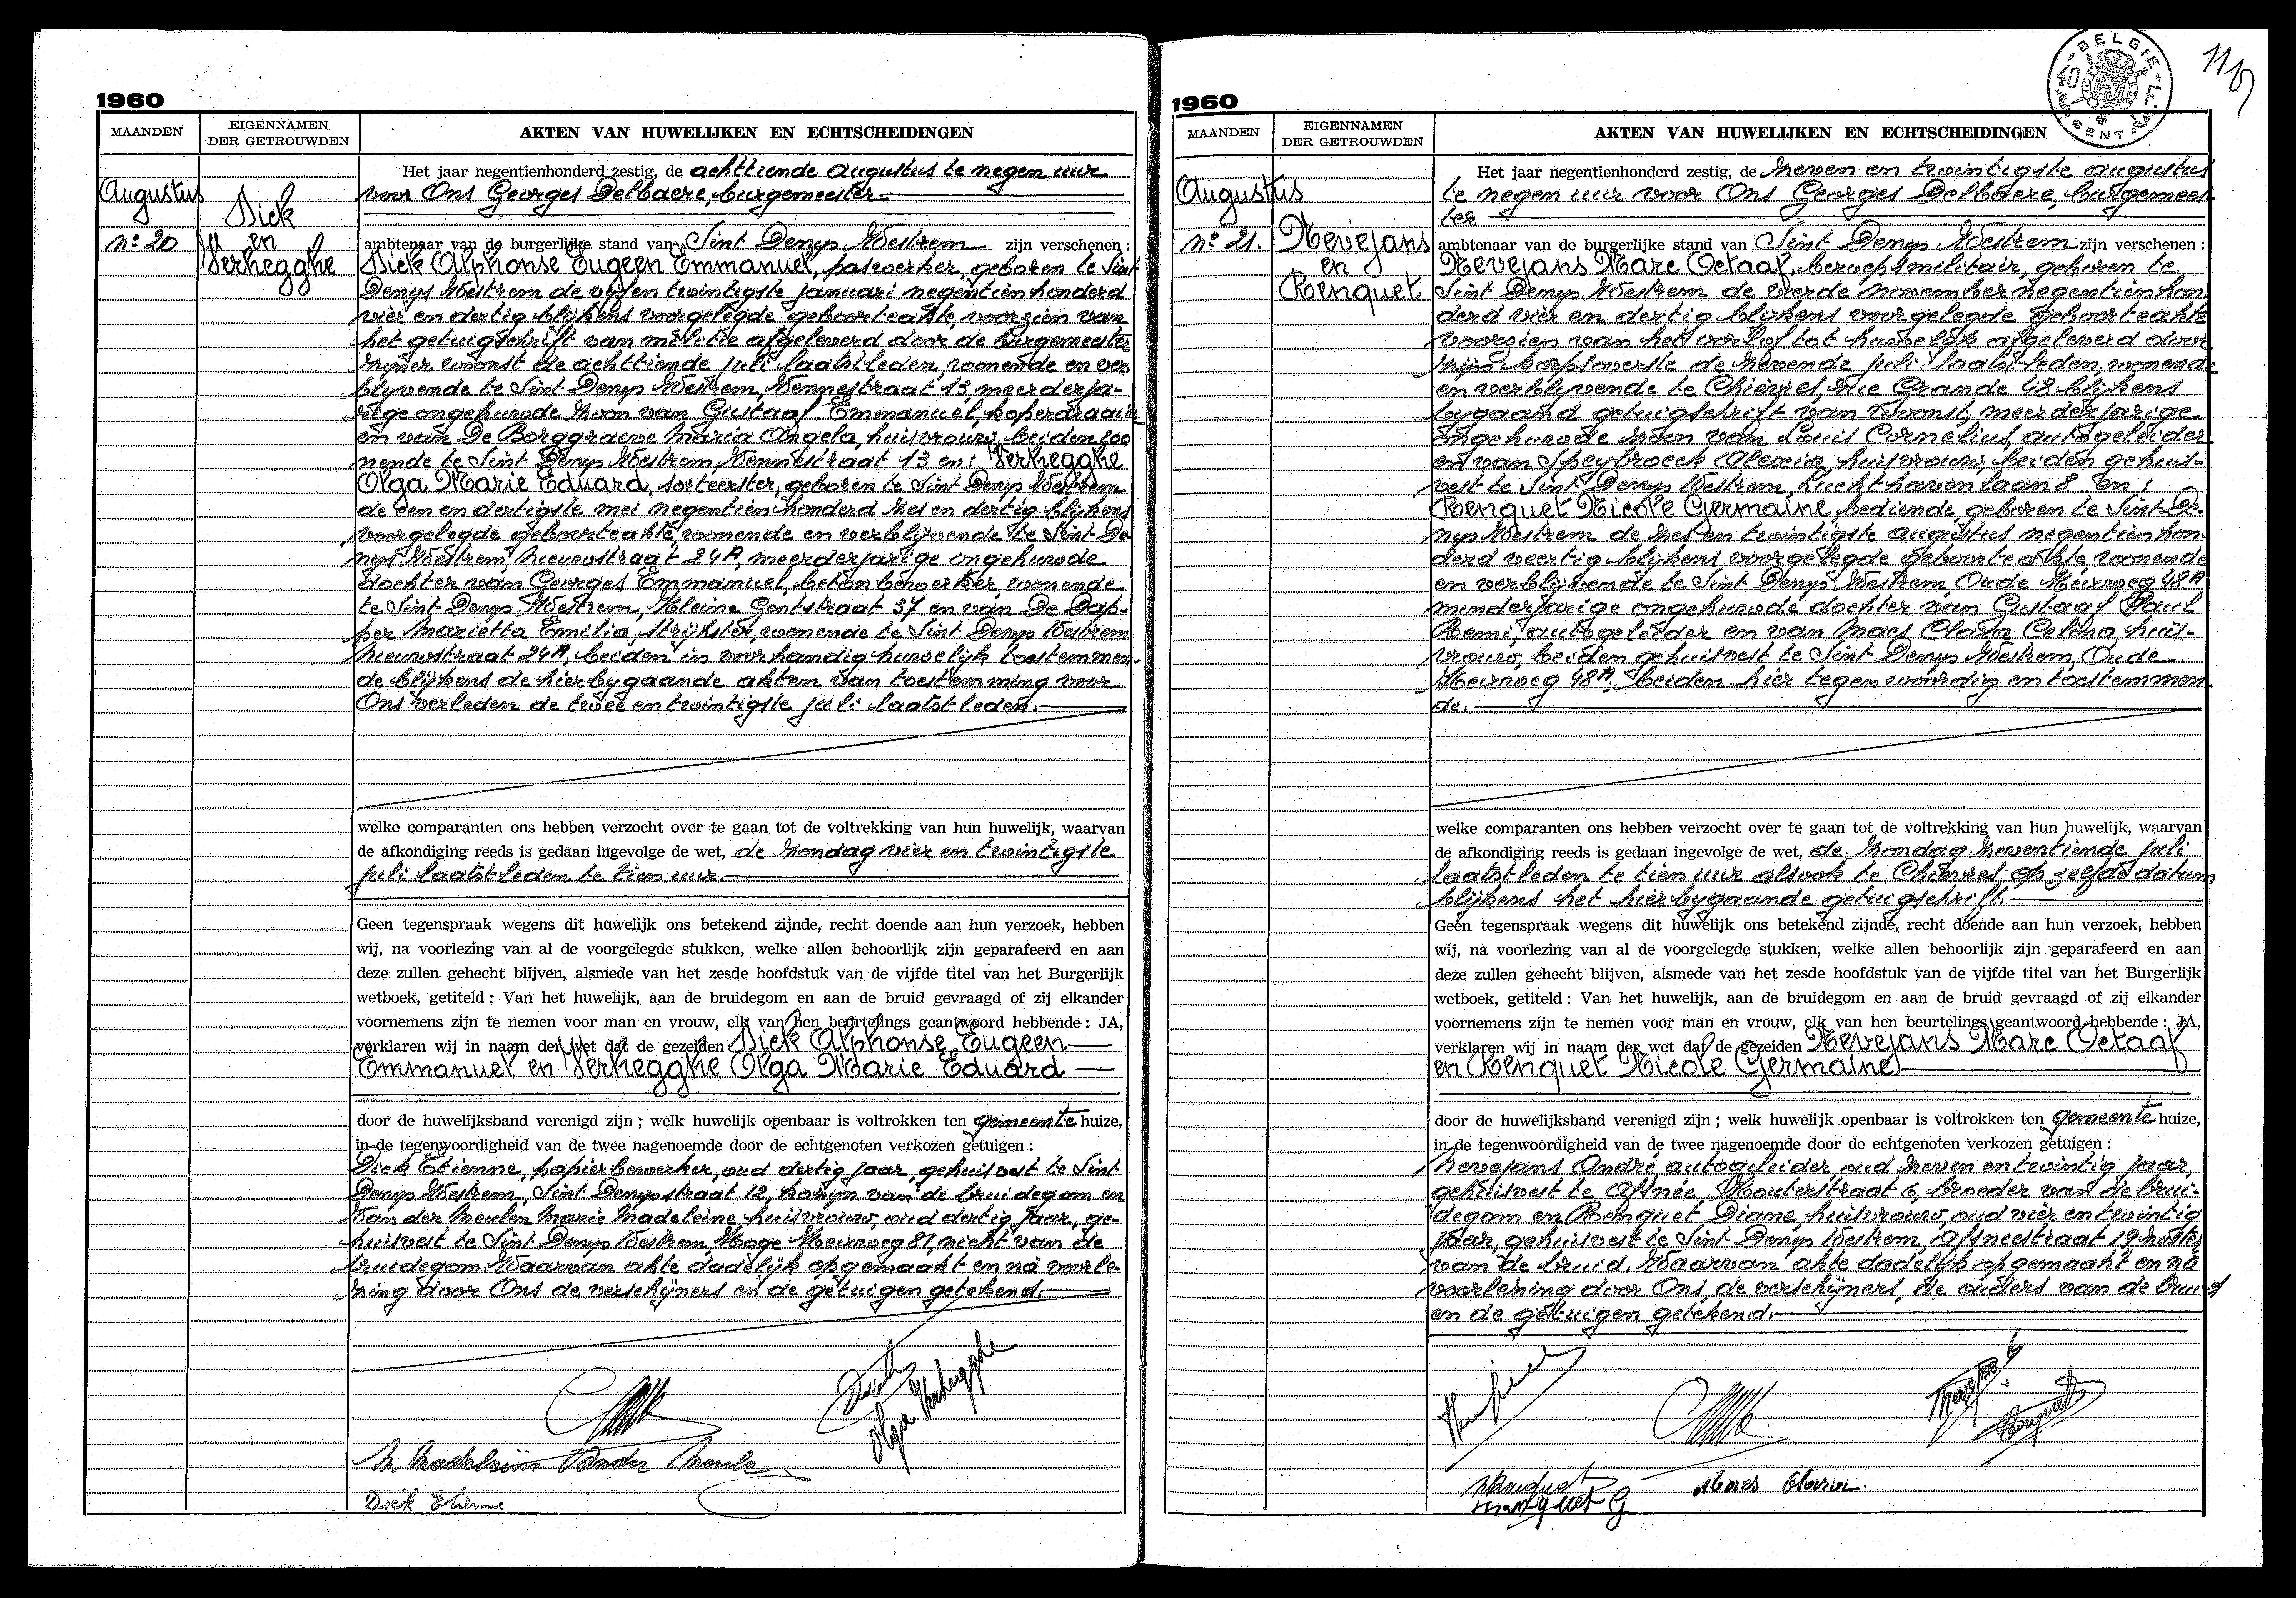 1960
MAANDEN
EIGENNAMEN
DER GETROUWDEN
AKTEN VAN HUWELIJKEN EN ECHTSCHEIDINGEN
Augustus
n° 20
Dick
en
Verhegghe
Het jaar negentienhonderd zestig, de achttiende augustus te negen uur
voor Ons Georges Delbaere, burgemeester
ambtenaar van de burgerlijke stand van Sint Denys Westrem zijn verschenen :
Dick Alphonse Eugeen Emmanuel, paswerker, geboren te Sint
Denys Westrem de vijf en twintigste januari negentien honderd
vier en dertig blijkens voorgelegde geboorteakte, voorzien van
het getuigschrift van militie afgeleverd door de burgemeester
zijner woonst de achttiende juli laatstleden, wonende en ver
blyvende te Sint Denys Westrem, Vennestraat 13, meerderja-
rige ongehuwde zoon van Gustaaf Emmanuel, koperdraaier
en van De Borggraeve Maria Angela, huisvrouw, beiden woo
nende te Sint Denys Westrem, Vennestraat 13 en : Verhegghe
Olga Marie Eduard, sorteerster, geboren te Sint Denys Westrem
de een en dertigste mei negentien honderd zes en dertig blijkens
voorgelegde geboorteakte, wonende en verblijvende te Sint De
nys Westrem, Nieuwstraat 24A, meerderjarige ongehuwde
dochter van Georges Emmanuel, betonbewerker, wonende
te Sint Denys Westrem, Kleine Gentstraat 37 en van De Dap-
per Marietta Emilia, strijkster, wonende te Sint Denys Westrem
Nieuwstraat 24A, beiden in voorhandig huwelijk toestemmen-
de blijkens de hierbygaande akten van toestemming voor
Ons verleden de twee en twintigste juli laatstleden.
welke comparanten ons hebben verzocht over te gaan tot de voltrekking van hun huwelijk, waarvan
de afkondiging reeds is gedaan ingevolge de wet, de zondag vier en twintigste
juli laatstleden te tien uur.
Geen tegenspraak wegens dit huwelijk ons betekend zijnde, recht doende aan hun verzoek, hebben
wij, na voorlezing van al de voorgelegde stukken, welke allen behoorlijk zijn geparafeerd en aan
deze zullen gehecht blijven, alsmede van het zesde hoofdstuk van de vijfde titel van het Burgerlijk
wetboek, getiteld : Van het huwelijk, aan de bruidegom en aan de bruid gevraagd of zij elkander
voornemens zijn te nemen voor man en vrouw, elk van hen beurtelings geantwoord hebbende : JA,
verklaren wij in naam der wet dat de gezeiden Dick Alphonse Eugeen
Emmanuel en Verhegghe Olga Marie Eduard
door de huwelijksband verenigd zijn ; welk huwelijk openbaar is voltrokken ten gemeente huize,
in de tegenwoordigheid van de twee nagenoemde door de echtgenoten verkozen getuigen :
Dick Etienne, papierbewerker, oud dertig jaar, gehuisvest te Sint
Denys Westrem, Sint Denysstraat 12, kozijn van de bruidegom en
Van der Meulen Marie Madeleine, huisvrouw, oud dertig jaar, ge-
huisvest te Sint Denys Westrem, Hoge Heirweg 81, nicht van de
bruidegom. Waarvan akte dadelijk opgemaakt en na voorle
zing door Ons de verschijners en de getuigen getekend.
Dick
Olga Verhegghe
M. Madeleine Vander Meulen
Dick Etienne
1960
BELGIE
40 F
GENT
MAANDEN
EIGENNAMEN
DER GETROUWDEN
AKTEN VAN HUWELIJKEN EN ECHTSCHEIDINGEN
Augustus
n° 21.
Nevejans
en
Renquet
Het jaar negentienhonderd zestig, de zeven en twintigste augustus
te negen uur voor Ons Georges Delbaere, burgemees
ter
ambtenaar van de burgerlijke stand van Sint Denys Westrem zijn verschenen :
Nevejans Marc Octaaf, beroepsmilitair, geboren te
Sint Denys Westrem de vierde november negentienhon
derd vier en dertig blijkens voorgelegde geboorteakte
voorzien van het verlof tot huwelijk afgeleverd door
zijn korpsoverste de zevende juli laatstleden, wonende
en verblyvende te Chièvres, Rue Grande 48 blijkens
bygaand getuigschrift van woonst, meerderjarige
ongehuwde zoon van Louis Cornelius, autogeleider
en van Speybroeck Alexia, huisvrouw, beiden gehuis-
vest te Sint Denys Westrem, Luchthavenlaan 8 en :
Renquet Nicole Germaine, bediende, geboren te Sint De-
nys Westrem de zes en twintigste augustus negentien hon-
derd veertig blijkens voorgelegde geboorteakte, wonende
en verblijvende te Sint Denys Westrem, Oude Heirweg 48A
minderjarige ongehuwde dochter van Gustaaf Paul
Remi, autogeleider en van Maes Clara Celina, huis-
vrouw, beiden gehuisvest te Sint Denys Westrem, Oude
Heirweg 48A, beiden hier tegenwoordig en toestemmen
de.
welke comparanten ons hebben verzocht over te gaan tot de voltrekking van hun huwelijk, waarvan
de afkondiging reeds is gedaan ingevolge de wet, de zondag zeventiende juli
laatstleden te tien uur alsook te Chièvres op zelfde datum
blijkens het hierbygaande getuigschrift.
Geen tegenspraak wegens dit huwelijk ons betekend zijnde, recht doende aan hun verzoek, hebben
wij, na voorlezing van al de voorgelegde stukken, welke allen behoorlijk zijn geparafeerd en aan
deze zullen gehecht blijven, alsmede van het zesde hoofdstuk van de vijfde titel van het Burgerlijk
wetboek, getiteld : Van het huwelijk, aan de bruidegom en aan de bruid gevraagd of zij elkander
voornemens zijn te nemen voor man en vrouw, elk van hen beurtelings geantwoord hebbende : JA,
verklaren wij in naam der wet dat de gezeiden Nevejans Marc Octaaf
en Renquet Nicole Germaine
door de huwelijksband verenigd zijn ; welk huwelijk openbaar is voltrokken ten gemeente huize,
in de tegenwoordigheid van de twee nagenoemde door de echtgenoten verkozen getuigen :
Nevejans André, autogeleider, oud zeven en twintig jaar,
gehuisvest te Afsnée, Kouterstraat 6, broeder van de brui-
degom en Renquet Diane, huisvrouw, oud vier en twintig
jaar, gehuisvest te Sint Denys Westrem, Afsneestraat 19, zuster
van de bruid. Waarvan akte dadelijk opgemaakt en na
voorlezing door Ons, de verschijners, de ouders van de bruid
en de getuigen getekend.
Maes Clara.